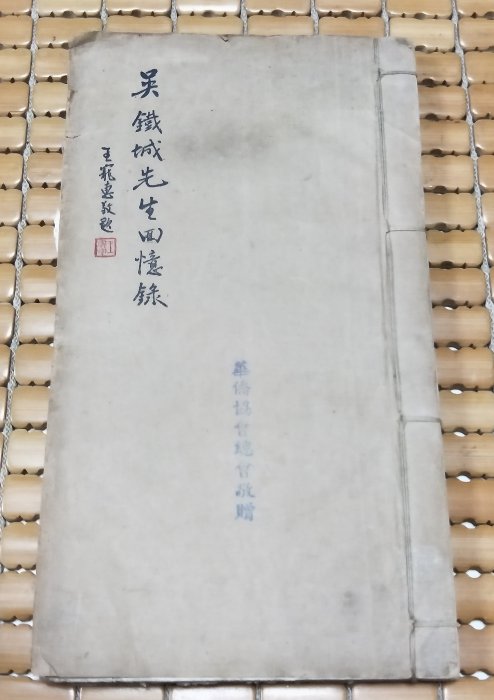 吳鐵城先生回憶錄
王寵惠敬題
華僑協會總會敬贈